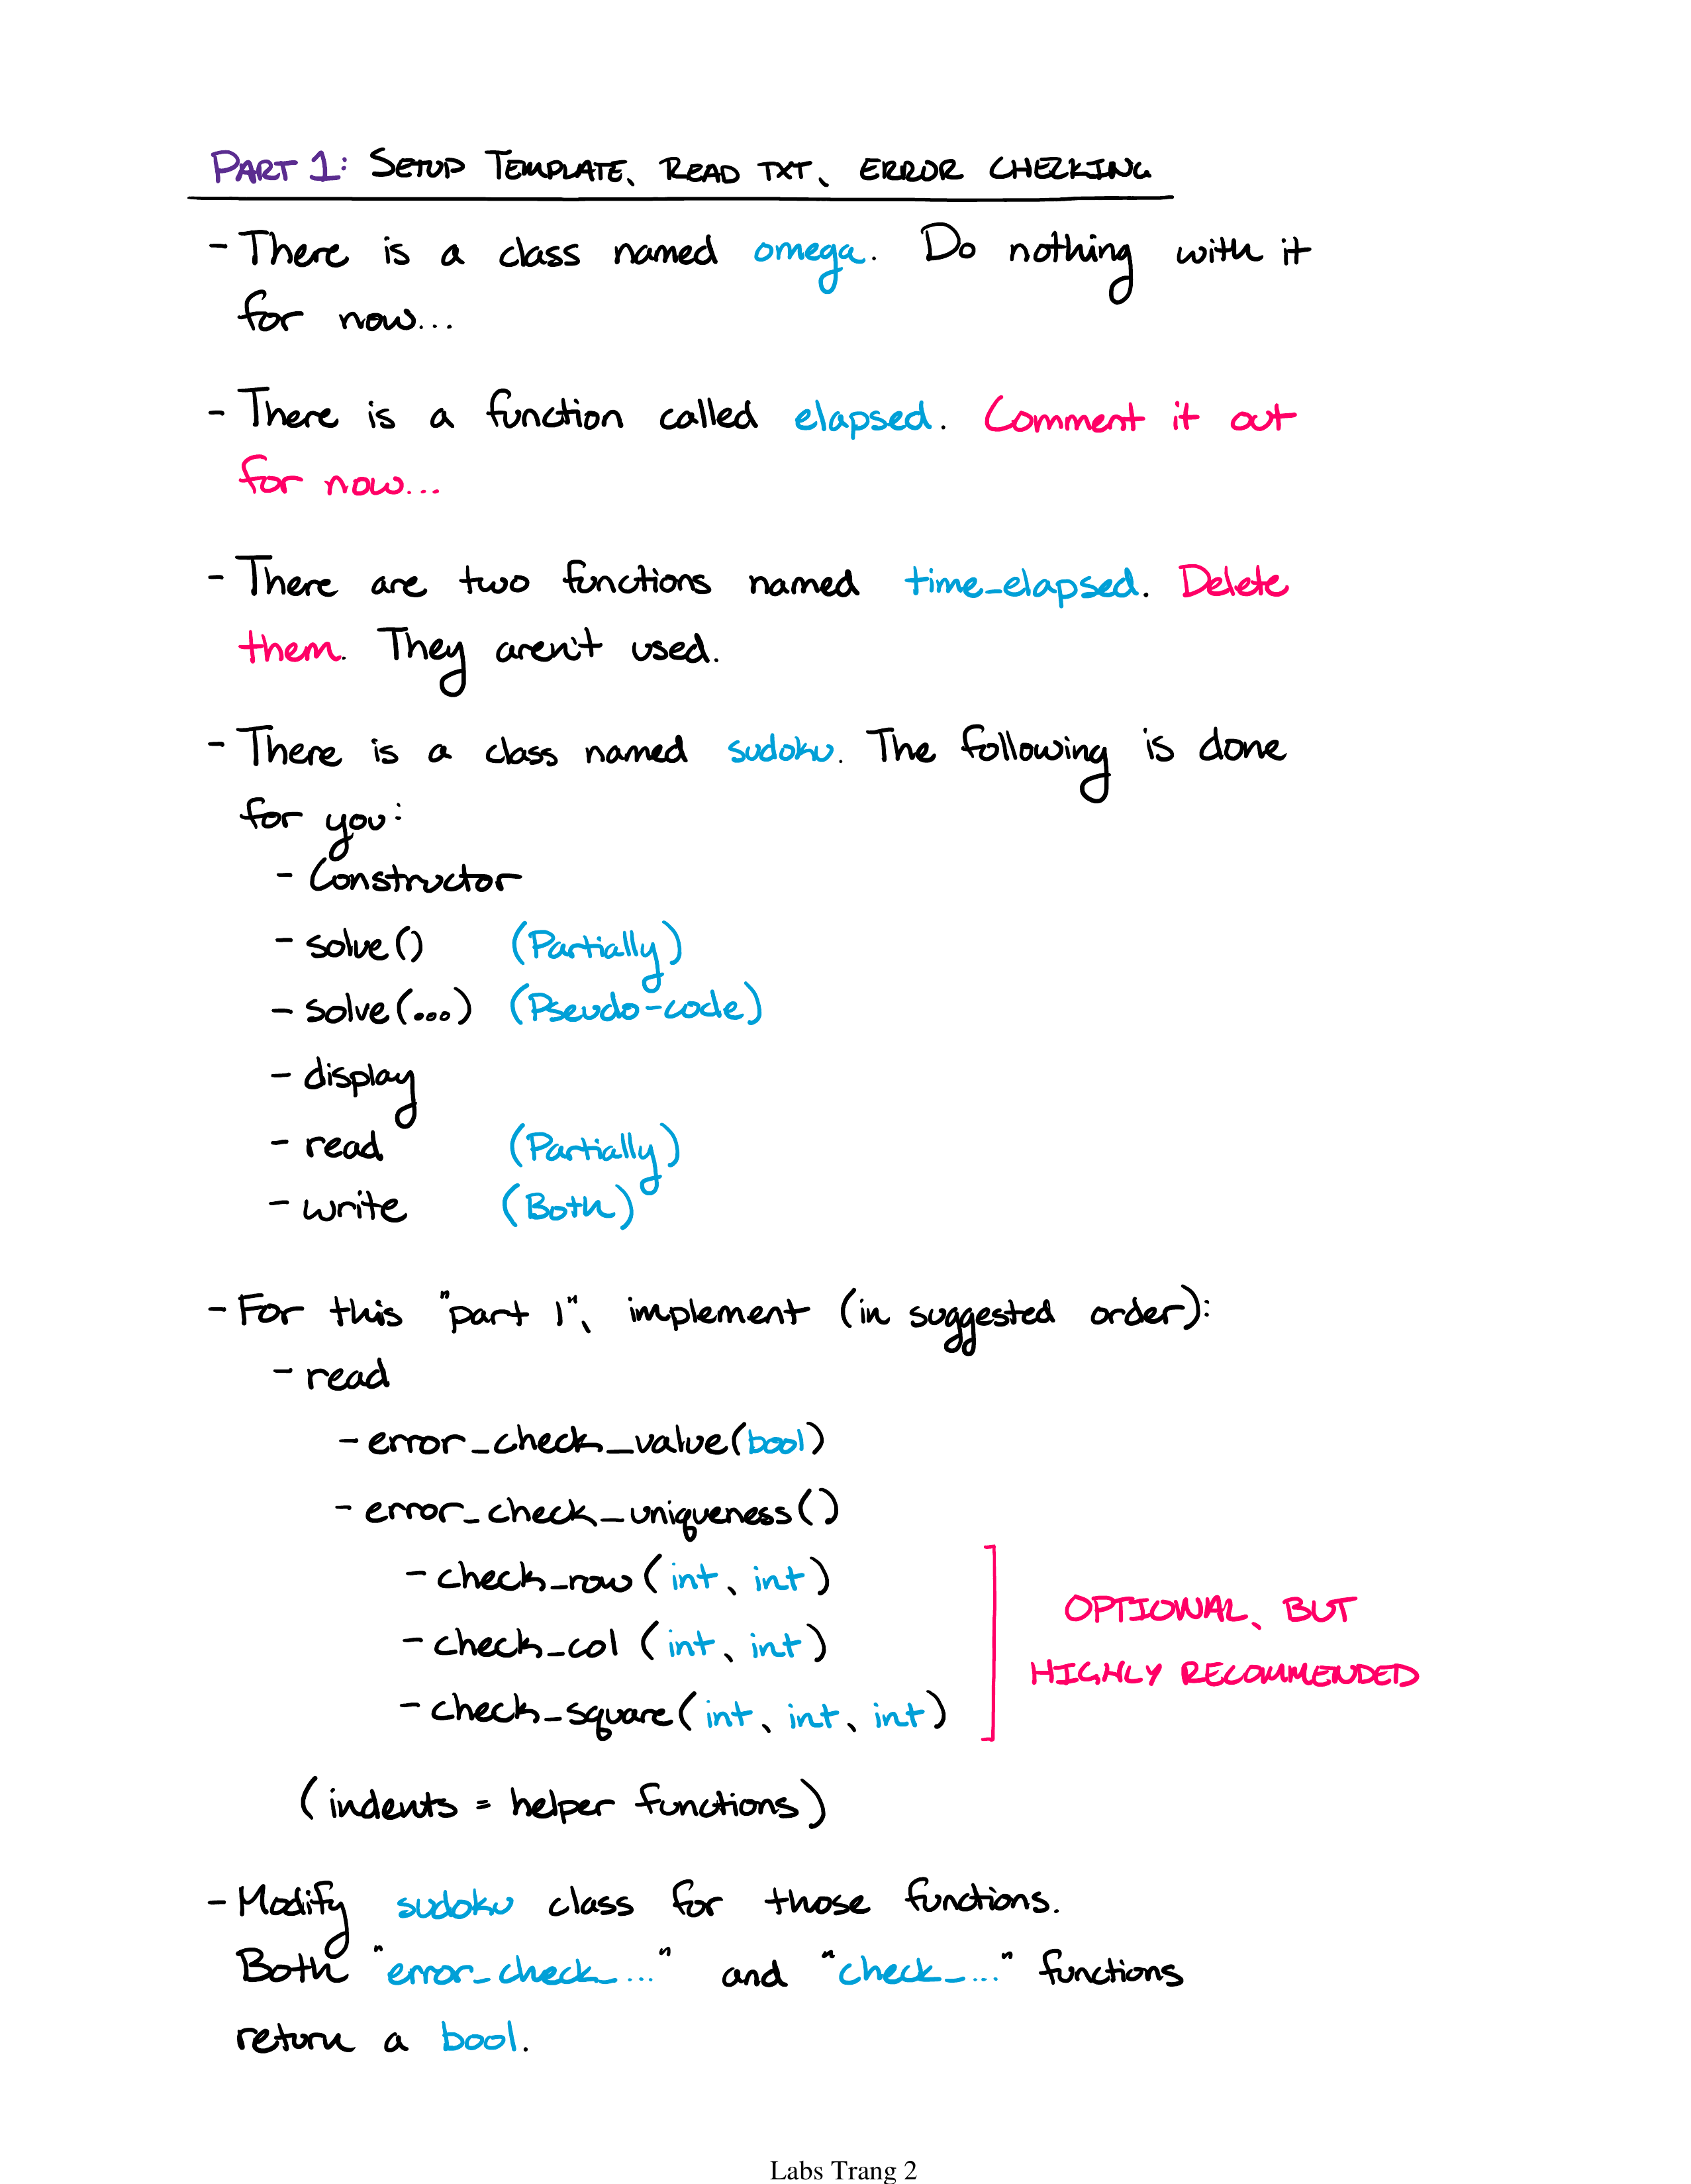 PART 1: SETUP TEMPLATE, READ TXT, ERROR CHECKING
- There is a class named omega. Do nothing with it
for now...
- There is a function called elapsed. Comment it out
for now...
- There are two functions named time_elapsed. Delete
them. They aren't used.
- There is a class named sudoku. The following is done
for you:
- Constructor
- solve() (Partially)
- solve(...) (Pseudo-code)
- display
- read (Partially)
- write (Both)
- For this "part 1", implement (in suggested order):
- read
- error_check_value(bool)
- error_check_uniqueness()
- check_row(int, int)
- check_col (int, int)
- check_square(int, int, int)
OPTIONAL, BUT
HIGHLY RECOMMENDED
(indents = helper functions)
- Modify sudoku class for those functions.
Both "error_check_..." and "check_..." functions
return a bool.
Labs Trang 2